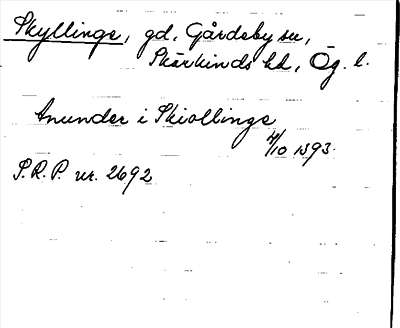 Skyllinge, gd, Gårdeby sn,
Skärkinds hd, Ög. l.
Anunder i Skiollinge
4/10 1393.
S.R.P. nr. 2692